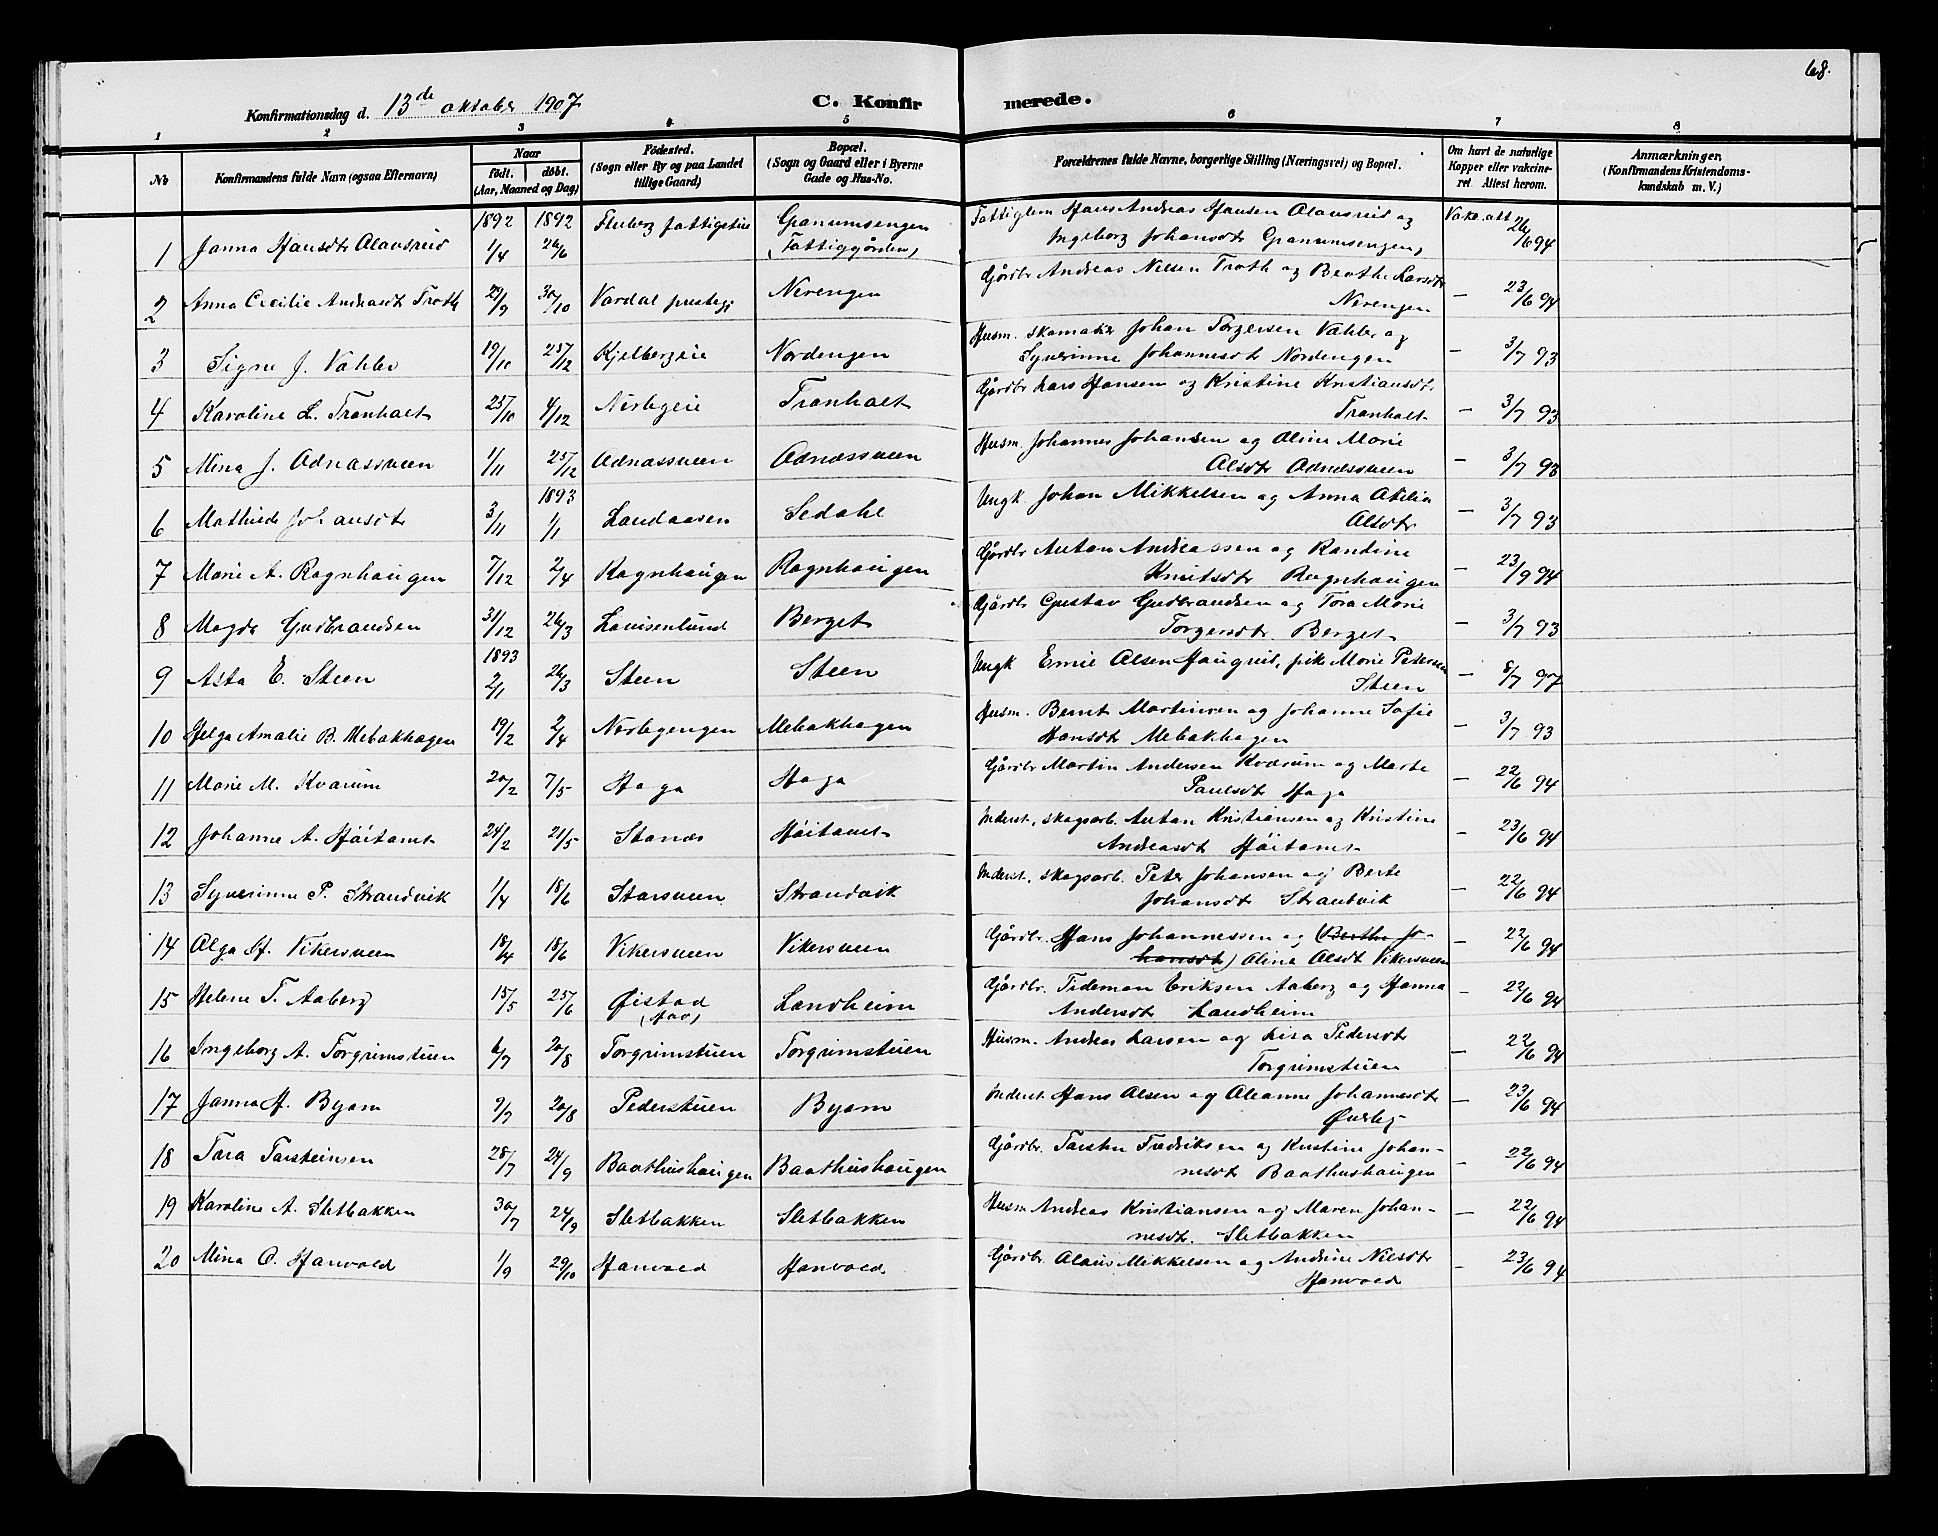 68.
Konfirmationsdag d. 13de oktober 1907
C. Konfirmerede.
1 2 3 4 5 6 7 8
No
Konfirmandens fulde Navn (ogsaa Efternavn)
Naar
født. døbt.
(Aar, Maaned og Dag)
Fødested.
(Sogn eller By og paa Landet
tillige Gaard)
Bopæl.
(Sogn og Gaard eller i Byerne
Gade og Hus-No.
Forældrenes fulde Navne, borgerlige Stilling (Næringsvei) og Bopæl.
Om havt de naturlige
Kopper eller vakcine-
ret Attest herom.
Anmærkninger,
(Konfirmandens Kristendoms-
kundskab m. V.)
1892 1892
1 Janna Hansdtr Olavsrud 1/4 26/6 Fluberg fattigstue Granumsengen
(Fattiggården)
Fattiglem Hans Andreas Hansen Olavsrud og
Ingeborg Johansdtr Granumsengen, Vakc. att 26/6 94
2 Anna Cecilie Andreasdt Troth 29/9 30/10 Vardal prestegj Nerengen
Gårdbr Andreas Nilsen Troth og Beathe Larsdtr
Nerengen - 23/6 94
3 Signe J. Vahler 19/10 25/12 Kjelbergeie Nordengen
Husm. skomaker Johan Torgersen Vahler og
Syverinne Johannesdt Nordengen - 3/7 93
4 Karoline L. Tranholt 25/10 4/12 Nerbyeie Tranholt
Gårdbr Lars Hansen og Kristine Kristiansdtr
Tranholt - 3/7 93
5 Mina J. Odnæssveen 1/11 25/12 Odnæssveen Odnæssveen
Husm. Johannes Johansen og Oline Marie
Olsdtr Odnæssveen - 3/7 93
1893
6 Mathilde Johansdtr 3/11 1/1 Landaasen Sedahl
Ungk Johan Mikkelsen og Anna Otilia
Olsdtr - 3/7 93
7 Marie A. Rognhaugen 7/12 2/4 Rognhaugen Rognhaugen
Gårdbr Anton Andreassen og Randine
Knutsdtr Rognhaugen - 23/9 94
8 Magda Gudbrandsen 31/12 26/3 Lovisenlund Berget
Gårdbr Gustav Gudbrandsen og Tora Marie
Torgersdtr Berget - 3/7 93
1893
9 Asta E. Steen 2/1 26/3 Steen Steen
Ungk Emil Olsen Haugrud, pik Marie Petersen
Steen - 8/7 97
10 Helga Amalie B. Mebakhagen 19/2 2/4 Nerbyengen Mebakhagen
Husm. Bernt Martinsen og Johanne Sofie
Hansdt Mebakhagen - 3/7 93
11 Marie M. Kværum 20/2 7/5 Haga Haga
Gårdbr Martin Andersen Kværum og Marte
Paulsdt Haga - 22/6 94
12 Johanne A. Høitomt 24/2 21/5 Stanæs Høitomt
Inderst, skogsarb. Anton Kristiansen og Kristine
Andreasdt Høitomt - 23/6 94
13 Syverinne P. Strandvik 1/4 18/6 Storsveen Strandvik
Inderst, skogsarb. Peter Johansen og Berte
Johansdt Strandvik - 22/6 94
14 Olga H. Vikersveen 18/4 18/6 Vikersveen Vikersveen
Gårdbr. Hans Johannessen og (Berthe Jo-
hansdt) Oline Olsdt Vikersveen - 22/6 94
15 Helene T. Aaberg 15/5 25/6 Øistad Landheim
Gårdbr. Tideman Eriksen Aaberg og Hanna
Andersdt Landheim - 22/6 94
16 Ingeborg A. Torgrimstuen 6/7 20/8 Torgrimstuen Torgrimstuen
Husm. Andreas Larsen og Lisa Pedersdt
Torgrimstuen - 22/6 94
17 Janna H. Byom 9/7 20/8 Pederstuen Byom
Inderst. Hans Olsen og Oleanne Johannesdt
Øverby - 23/6 94
18 Tora Torsteinsen 28/7 24/9 Baathushaugen Baathushaugen
Gårdbr. Torsten Fredriksen og Kristine Johan-
nesdt Baathushaugen - 22/6 94
19 Karoline A. Sletbakken 30/7 24/9 Sletbakken Sletbakken
Husm Andreas Kristiansen og Maren Johan-
nesdt. Sletbakken - 22/6 94
20 Mina O. Hanvold 1/9 29/10 Hanvold Hanvold
Gårdbr. Olaus Mikkelsen og Andrine Nilsdt
Hanvold - 23/6 94